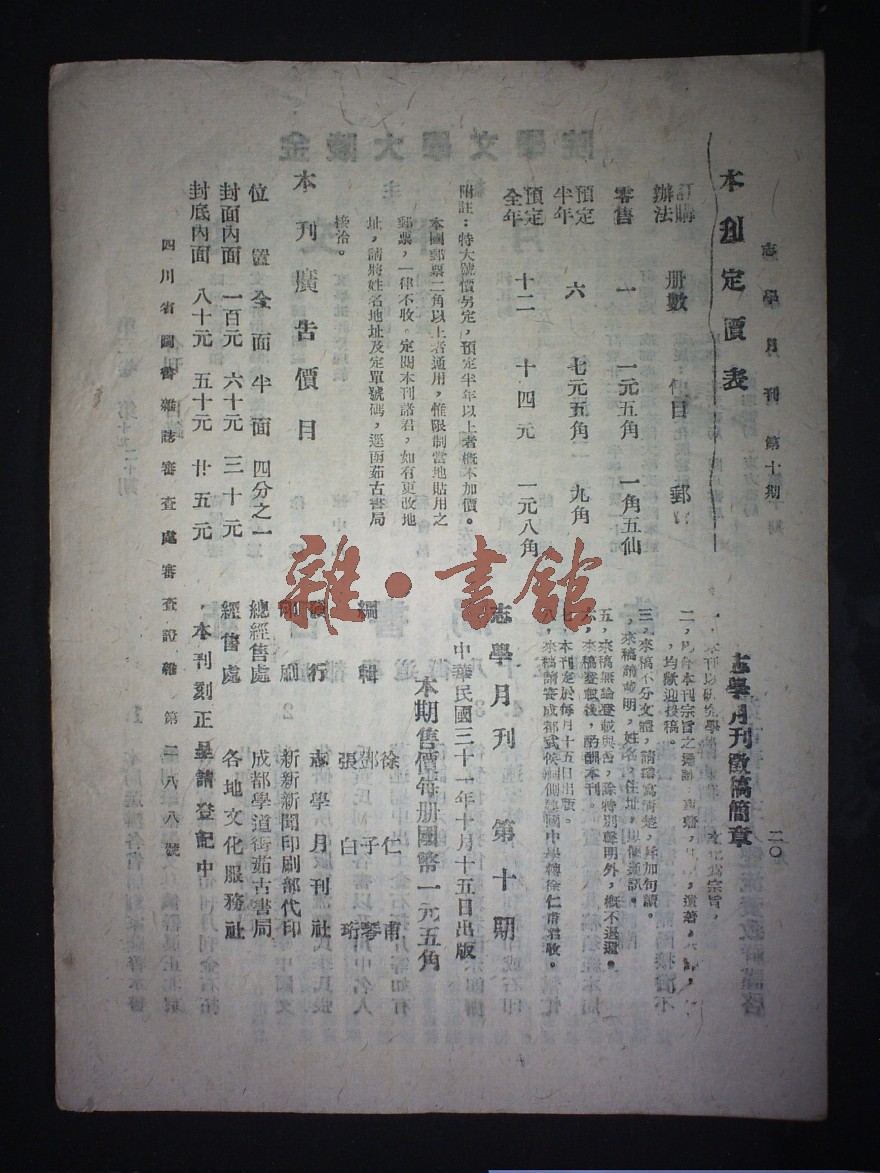 志學月刊 第十期
二〇
本刊定價表
訂購辦法 册數 價目 郵
零售 一 一元五角 一角五仙
預定半年 六 七元五角 九角
預定全年 十二 十四元 一元八角
附註：特大號價另定，預定半年以上者概不加價。
本國郵票二角以上者通用，惟限制當地貼用之
郵票，一律不收。定閱本刊諸君，如有更改地
址，請將姓名地址及定單號碼，逕函茹古書局
接洽。
本刊廣告價目
位置 全面 半面 四分之一
封面內面 一百元 六十元 三十元
封底內面 八十元 五十元 廿五元
四川省圖書雜誌審查處審查證雜第二八八號
志學月刊徵稿簡章
，均歡迎投稿。
三，來稿不分文體，請謄寫清楚，幷加句讀。
，來稿請載明，姓名，住址，以便通訊。
五，來稿無論登載與否，除特別聲明外，概不退還。
六，來稿登載後，酌酬本刊。
七，本刊定於每月十五日出版。
八，來稿請寄成都武侯祠側建國中學轉徐仁甫君收。
志學月刊 第十期
中華民國三十一年十月十五日出版
本期售價每册國幣一元五角
編輯 徐仁甫 鄧子琴 張白珩
發行 志學月刊社
印刷 新新新聞印刷部代印
總經售處 成都學道街茹古書局
經售處 各地文化服務社
本刊刻正呈請登記中
雜·書館